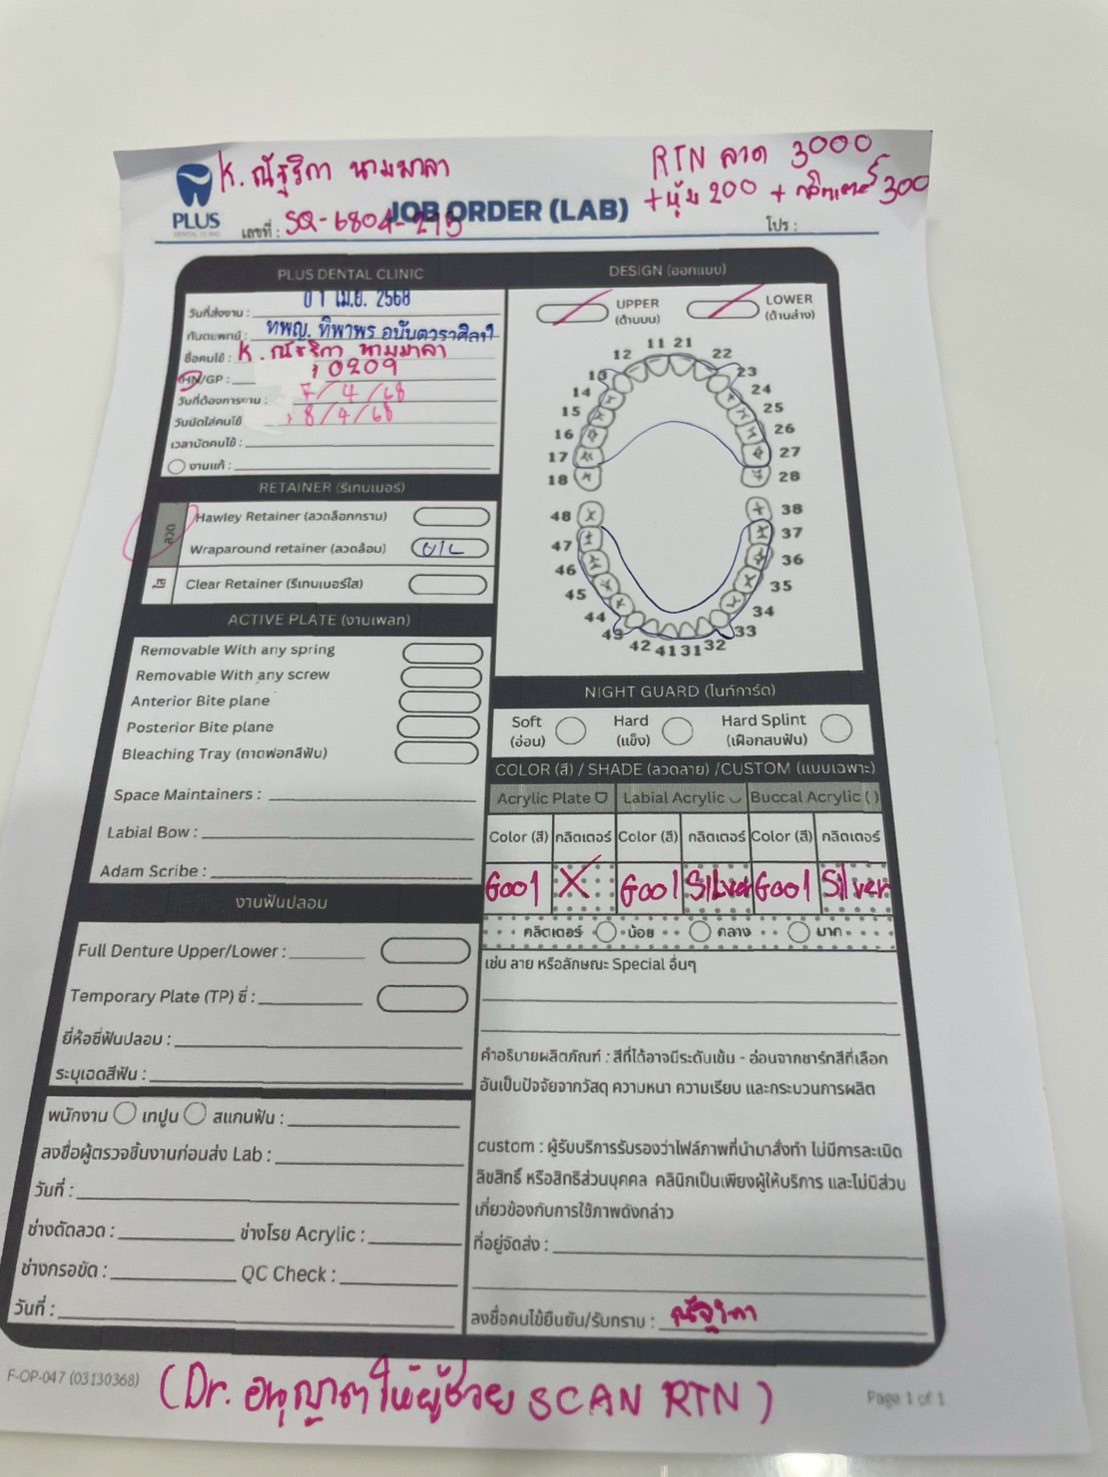 K. ณัฐริกา นามมาลา
RTN ลวด 3000
+หุ้ม 200 + กลิตเตอร์ 300
PLUS
DENTAL CLINIC
JOB ORDER (LAB)
เลขที่ : SQ-6804-215
โปร :
PLUS DENTAL CLINIC
วันที่ส่งงาน : 01 เม.ย. 2568
ทันตแพทย์ : ทพญ. ทิพาพร
ชื่อคนไข้ : K. ณัฐริกา นามมาลา
HN/GP : 0209
วันที่ต้องการงาน : 7/4/68
วันนัดใส่คนไข้ 8/4/68
เวลานัดคนไข้ :
งานแก้ :
RETAINER (รีเทนเนอร์)
ลวด
Hawley Retainer (ลวดล็อกกราม)
Wraparound retainer (ลวดล้อม) U/L
ใส
Clear Retainer (รีเทนเนอร์ใส)
ACTIVE PLATE (งานเพลท)
Removable With any spring
Removable With any screw
Anterior Bite plane
Posterior Bite plane
Bleaching Tray (ถาดฟอกสีฟัน)
Space Maintainers :
Labial Bow :
Adam Scribe :
งานฟันปลอม
Full Denture Upper/Lower :
Temporary Plate (TP) ซี่ :
ยี่ห้อซี่ฟันปลอม :
ระบุเฉดสีฟัน :
พนักงาน เทปูน สแกนฟัน :
ลงชื่อผู้ตรวจชิ้นงานก่อนส่ง Lab :
วันที่ :
ช่างดัดลวด : ช่างโรย Acrylic :
ช่างกรอขัด : QC Check :
วันที่ :
DESIGN (ออกแบบ)
UPPER
(ด้านบน)
LOWER
(ด้านล่าง)
11 21
12 22
13 23
14 24
15 25
16 26
17 27
18 28
48 38
47 37
46 36
45 35
44 34
43 33
42 41 31 32
NIGHT GUARD (ไนท์การ์ด)
Soft
(อ่อน)
Hard
(แข็ง)
Hard Splint
(เฝือกสบฟัน)
COLOR (สี) / SHADE (ลวดลาย) /CUSTOM (แบบเฉพาะ)
Acrylic Plate Labial Acrylic Buccal Acrylic ( )
Color (สี) กลิตเตอร์ Color (สี) กลิตเตอร์ Color (สี) กลิตเตอร์
G001 X G001 Silver G001 Silver
กลิตเตอร์ น้อย กลาง มาก
เช่น ลาย หรือลักษณะ Special อื่นๆ
คำอธิบายผลิตภัณฑ์ : สีที่ได้อาจมีระดับเข้ม - อ่อนจากชาร์ทสีที่เลือก
อันเป็นปัจจัยจากวัสดุ ความหนา ความเรียบ และกระบวนการผลิต
custom : ผู้รับบริการรับรองว่าไฟล์ภาพที่นำมาสั่งทำ ไม่มีการละเมิด
ลิขสิทธิ์ หรือสิทธิส่วนบุคคล คลินิกเป็นเพียงผู้ให้บริการ และไม่มีส่วน
เกี่ยวข้องกับการใช้ภาพดังกล่าว
ที่อยู่จัดส่ง :
ลงชื่อคนไข้ยืนยัน/รับทราบ : ณัฐริกา
F-OP-047 (03130368)
(Dr. อนุญาตให้ผู้ช่วย SCAN RTN)
Page 1 of 1